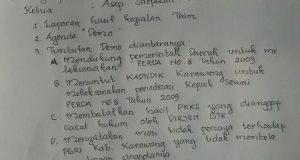 Ketua : Asep Saepul
1. Laporan hasil kegiatan Team
2. Agenda "Demo"
3. Tuntutan Demo diantaranya :
A. Mendukung pemerintah Daerah untuk me
laksanakan "PERDA No. 8 Tahun 2009
B. Menuntut KADISDIK Karawang untuk
melaksanakan periodesasi Kepsek sesuai
PERDA No. 8 Tahun 2009
C. Membatalkan hasil PKKS yang dianggap
cacat hukum oleh DIRJEN GTK
D. Menyatakan mosi tidak percaya terhadap
PGRI Kab. Karawang yang tidak membela
anggotanya